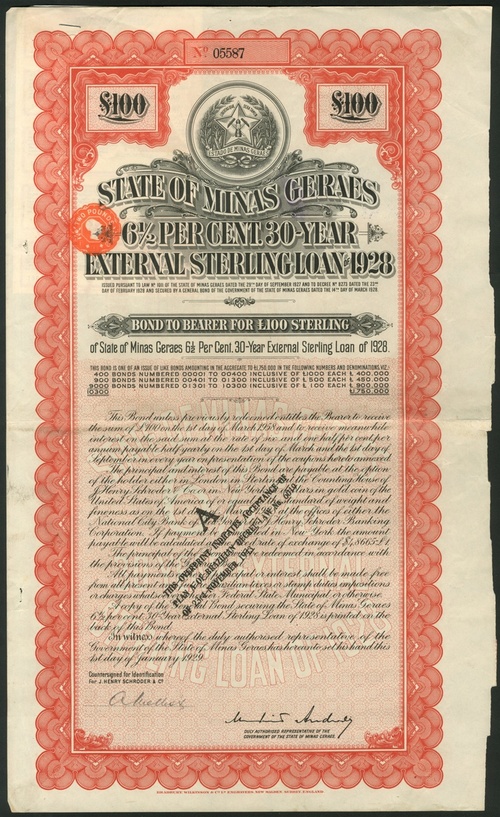 Nº 05587
£100 £100
ESTADO DE MINAS GERAES
STATE OF MINAS GERAES
6½ PER CENT. 30-YEAR
EXTERNAL STERLING LOAN OF 1928
ISSUED PURSUANT TO LAW Nº 1011 OF THE STATE OF MINAS GERAES DATED THE 29TH DAY OF SEPTEMBER 1927 AND TO DECREE Nº 8273 DATED THE 23RD
DAY OF FEBRUARY 1928 AND SECURED BY A GENERAL BOND OF THE GOVERNMENT OF THE STATE OF MINAS GERAES DATED THE 14TH DAY OF MARCH 1928.
BOND TO BEARER FOR £100 STERLING
of State of Minas Geraes 6½ Per Cent. 30-Year External Sterling Loan of 1928.
THIS BOND IS ONE OF AN ISSUE OF LIKE BONDS AMOUNTING IN THE AGGREGATE TO £1,750,000 IN THE FOLLOWING NUMBERS AND DENOMINATIONS, VIZ:-
400 BONDS NUMBERED 00001 TO 00400 INCLUSIVE OF £1,000 EACH £ 400,000
900 BONDS NUMBERED 00401 TO 01300 INCLUSIVE OF £ 500 EACH £ 450,000
9000 BONDS NUMBERED 01301 TO 10300 INCLUSIVE OF £ 100 EACH £ 900,000
10300 £1,750,000
This Bond unless previously redeemed entitles the Bearer to receive
the sum of £100 on the 1st day of March 1958 and to receive meanwhile
interest on the said sum at the rate of six and one half per cent per
annum payable half yearly on the 1st day of March and the 1st day of
September in every year on presentation of the coupons hereto annexed
The principal and interest of this Bond are payable at the option
of the holder either in London in Sterling at the Counting House of
J. Henry Schroder & Co. or in New York in dollars in gold coin of the
United States of America of equal to the standard of weight and
fineness as on the 1st day of March at the offices of either the
National City Bank of New York or J. Henry Schroder Banking
Corporation. If payment in New York the amount
payable will be calculated at the rate of exchange of $4.8665 = £1
The principal of the redeemed in accordance with
the provisions of the
All payments of principal or interest shall be made free
from all present or future taxes stamp duties impositions
or charges whatsoever whether Federal State Municipal or otherwise
A copy of the General Bond securing the State of Minas Geraes
6½ per cent 30-Year External Sterling Loan of 1928 is printed on the
back of this Bond
In witness whereof the duly authorised representative of the
Government of the State of Minas Geraes has hereunto set his hand this
1st day of January 1929
A
THE OBLIGANT INDICATES ACCEPTANCE OF
PLAN A OF BRAZILIAN DECREE-LAW No. 6019
OF 23RD NOVEMBER, 1943
Countersigned for Identification
For J. HENRY SCHRODER & Cº
DULY AUTHORISED REPRESENTATIVE OF THE
GOVERNMENT OF THE STATE OF MINAS GERAES.
BRADBURY, WILKINSON & Cº Lᵈ ENGRAVERS, NEW MALDEN, SURREY, ENGLAND.